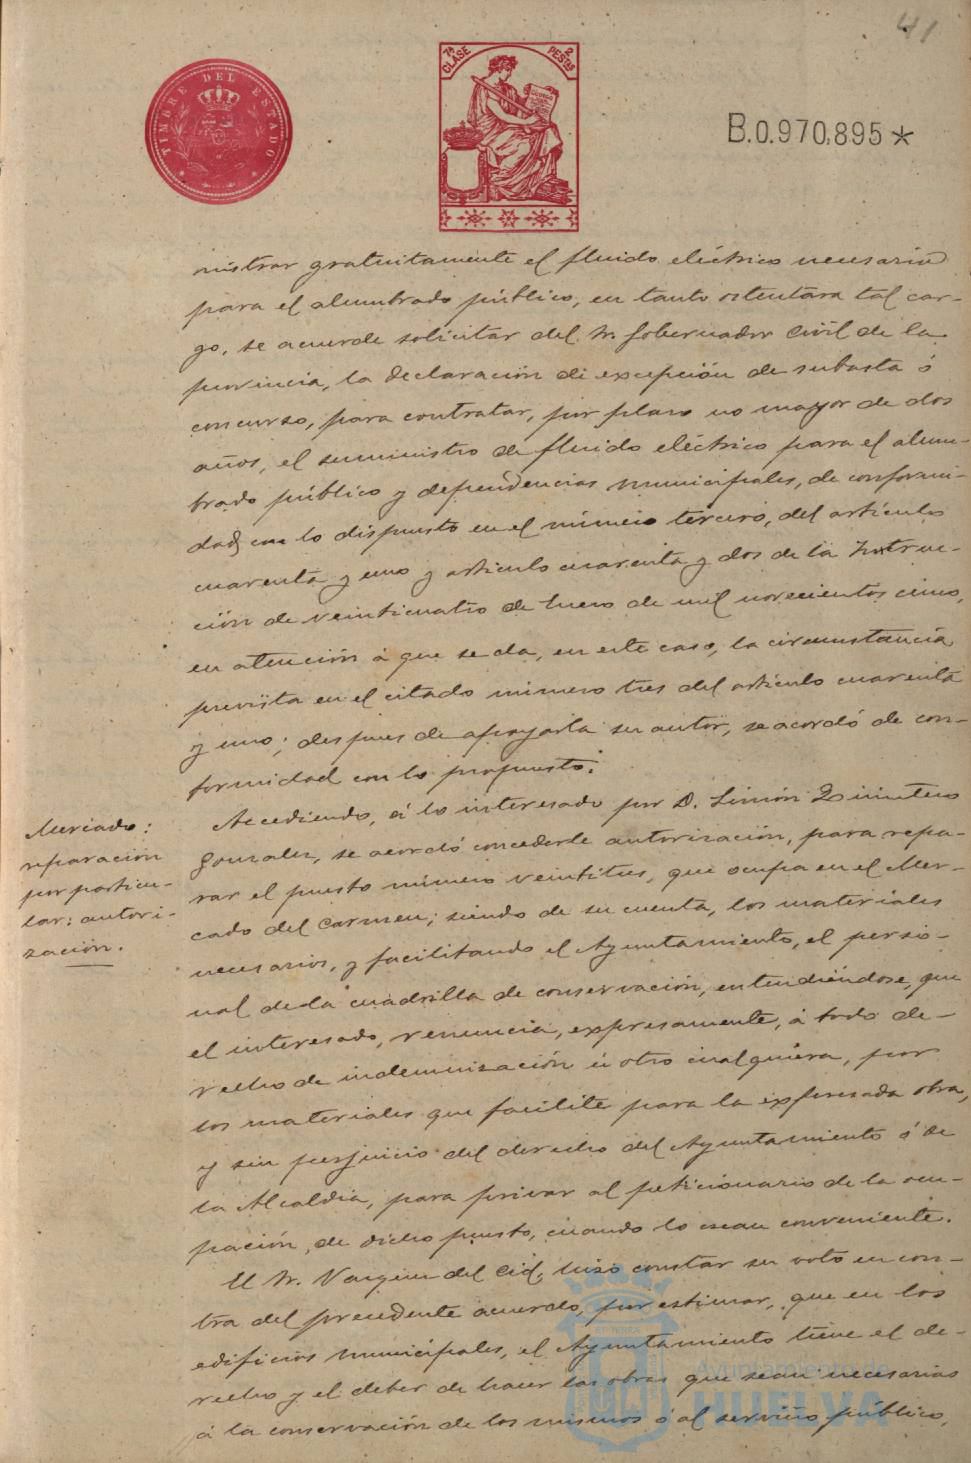 41
TIMBRE DEL ESTADO
7ª CLASE
2 PESTAS
B.0.970,895*
nistrar gratuitamente el fluido eléctrico necesario
para el alumbrado público, en tanto ostentara tal car-
go, se acuerde solicitar del Sr. Gobernador Civil de la
provincia, la declaración de excepción de subasta ó
concurso, para contratar, por plazo no mayor de dos
años, el suministro de fluido eléctrico para el alum-
brado público y dependencias municipales, de conformi-
dad con lo dispuesto en el número tercero, del artículo
cuarenta y uno y artículo cuarenta y dos de la Instruc-
ción de veinticuatro de Enero de mil novecientos cinco,
en atención á que se da, en este caso, la circunstancia
prevista en el citado número tres del artículo cuarenta
y uno; despues de apoyarla su autor, se acordó de con-
formidad con lo propuesto.
Mercado:
reparación
por particu-
lar: autori-
zación.
Accediendo, á lo interesado por D. Simón Quintero
Gonzalez, se acordó concederle autorización, para repa-
rar el puesto número veintitres, que ocupa en el Mer-
cado del Carmen; siendo de su cuenta, los materiales
necesarios, y facilitando el Ayuntamiento, el perso-
nal de la cuadrilla de conservación, entendiéndose, que
el interesado, renuncia, expresamente, á todo de-
recho de indemnización ú otro cualquiera, por
los materiales que facilite para la expresada obra,
y sin perjuicio del derecho del Ayuntamiento ó de
la Alcaldia, para privar al peticionario de la ocu-
pación, de dicho puesto, cuando lo crean conveniente.
El Sr. Vazquez del Cid, hizo constar su voto en con-
tra del precedente acuerdo, por estimar, que en los
edificios municipales, el Ayuntamiento tiene el de-
recho y el deber de hacer las obras que sean necesarias
á la conservación de los mismos ó al servicio público,
Ayuntamiento de
HUELVA